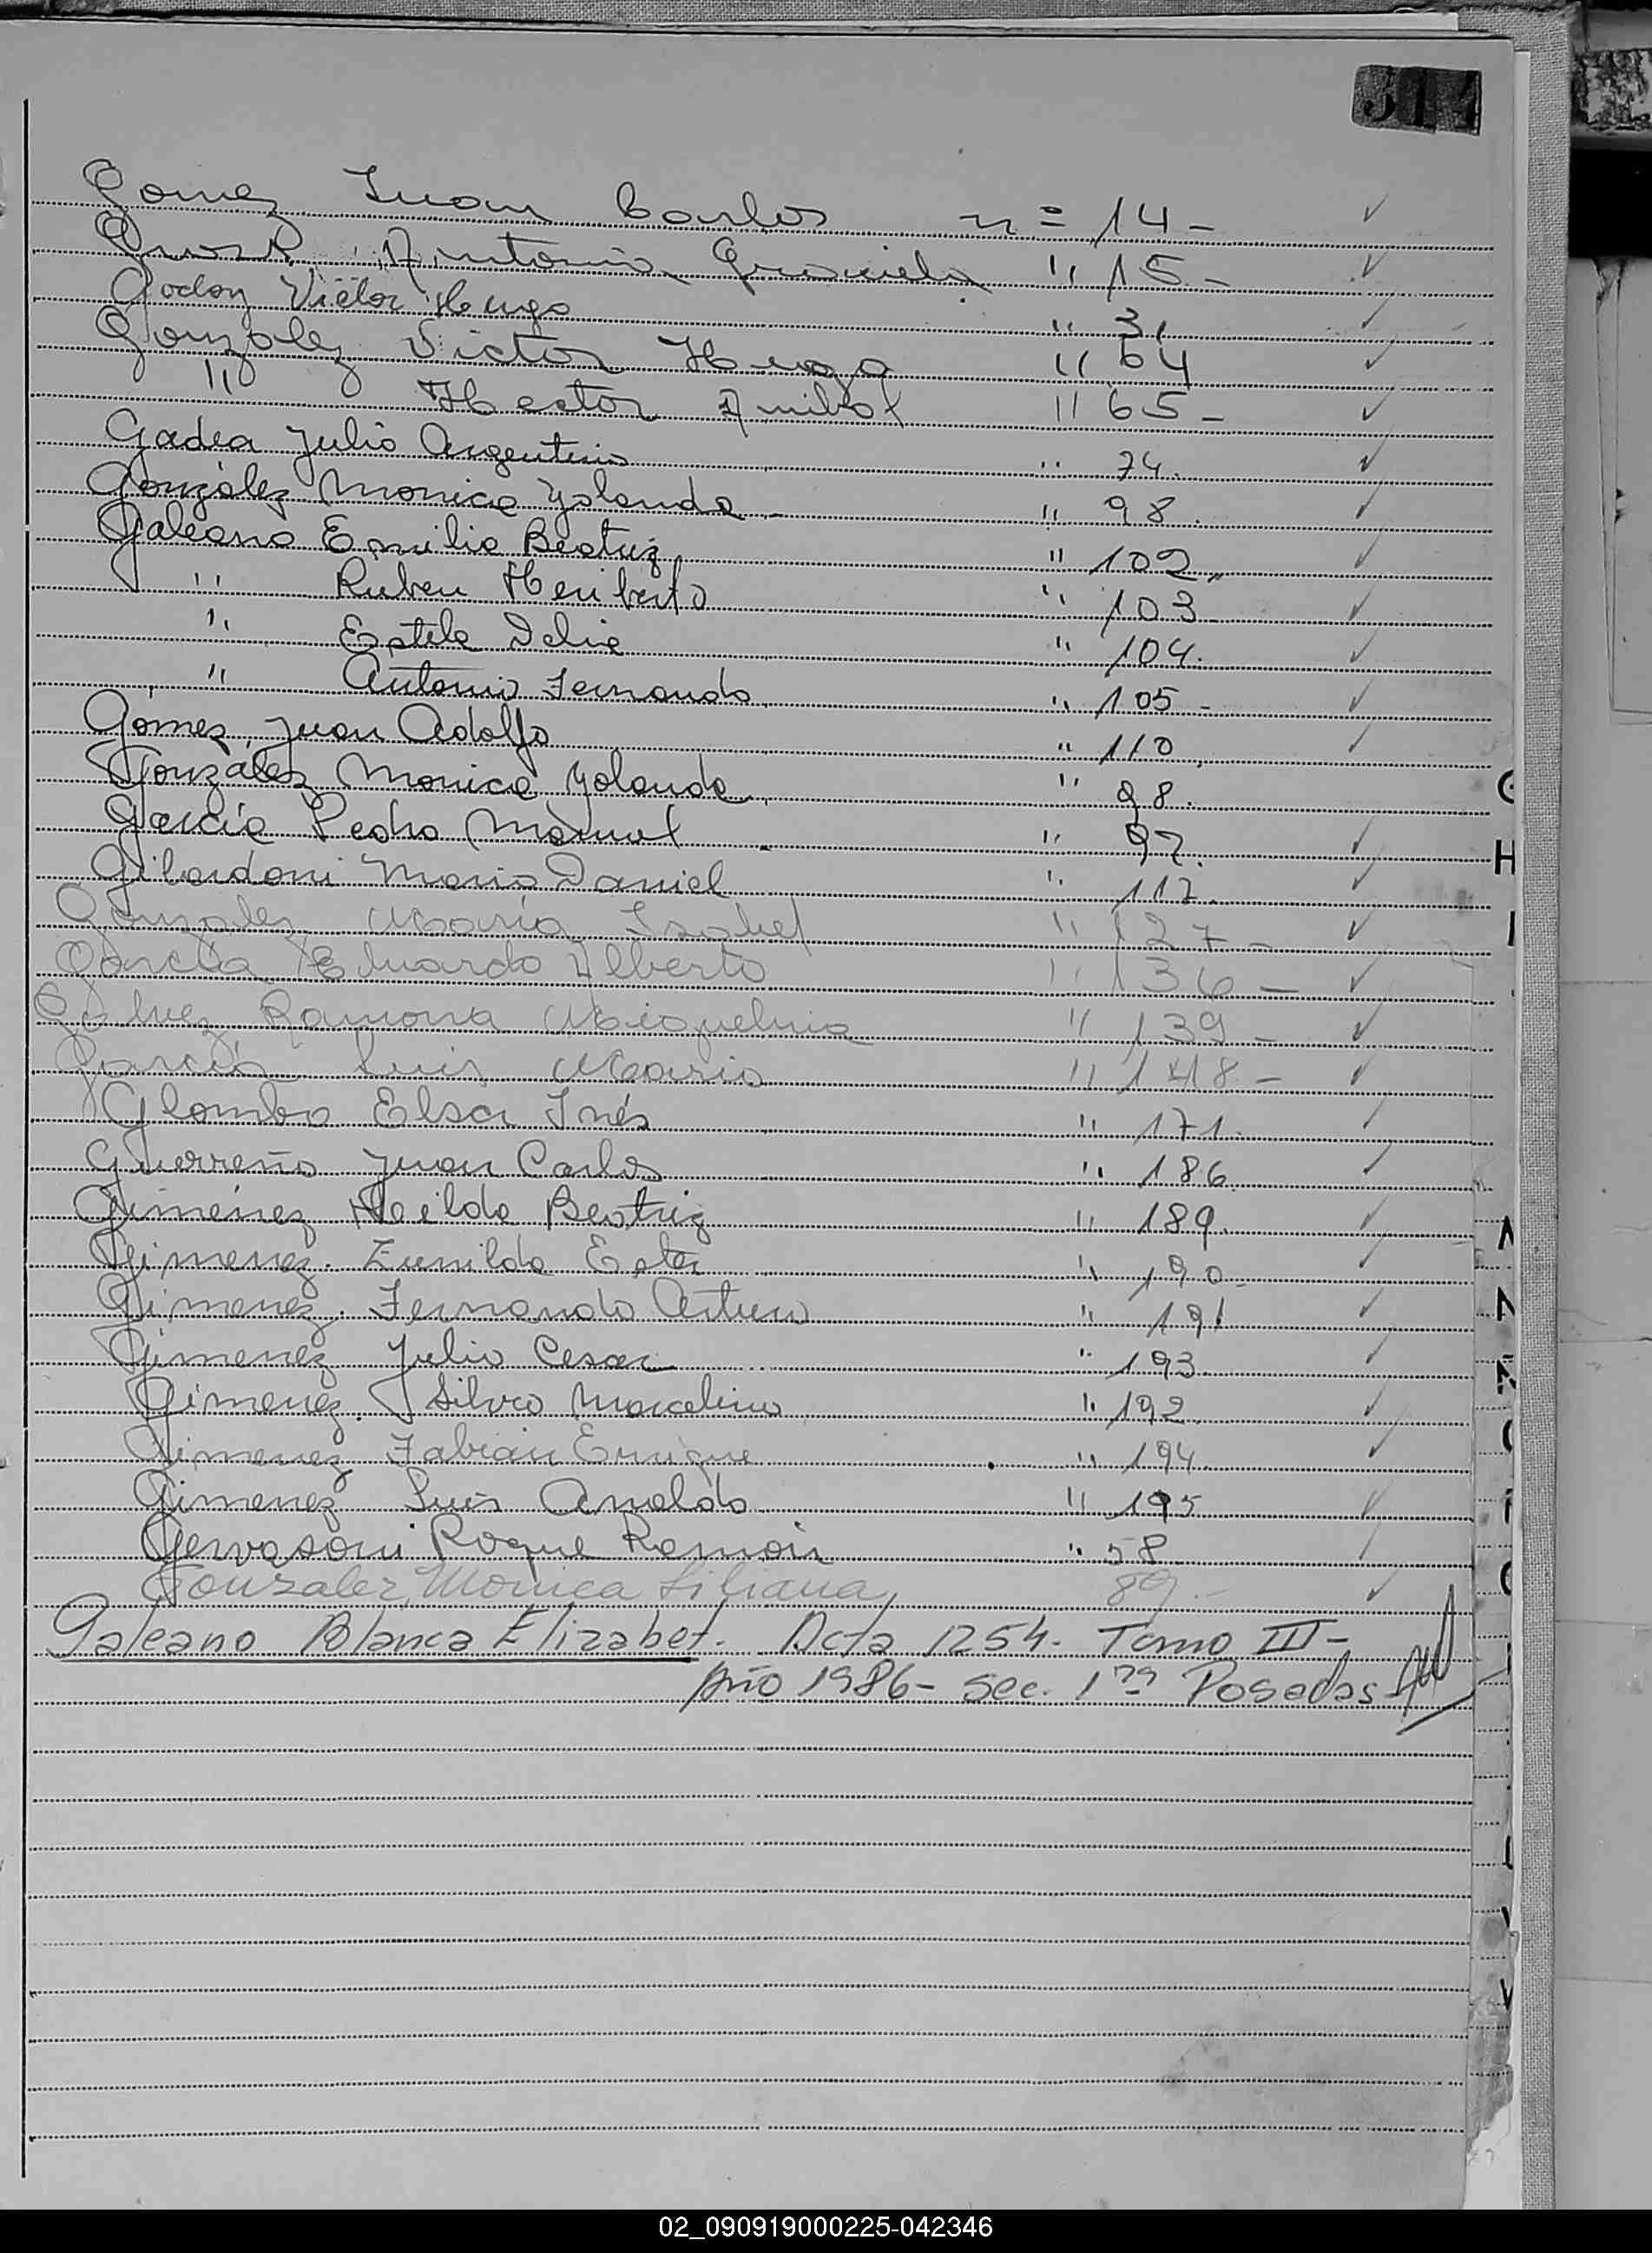 511
Gomez Juan Carlos n= 14 -
Antonia Graciela " 15 -
Godoy Victor Hugo " 31
Gonzalez Victor Hugo " 64
" Hector Anibal " 65 -
Gadea Julio Argentino " 74.
González Monica Yolanda - " 98.
Galeano Emilia Beatriz " 102
" Ruben Heriberto " 103
" Estela Delia " 104.
" Antonio Fernando " 105 -
Gómez, Juan Adolfo " 110
González Monica Yolanda " 98.
García Pedro Manuel " 97.
Gilardoni Mario Daniel " 117.
Gonzalez María Isabel " 127 -
García Eduardo Alberto " 136 -
Ramona Miguelina " 139 -
García Luis Mario " 148 -
Glombo Elsa Inés " 171.
Guerreño Juan Carlos " 186
Giménez Beatriz " 189.
Gimenez. Zunilda Ester " 190 -
Gimenez. Fernando Arturo " 191
Gimenez Julio Cesar " 193
Gimenez. Silvio Marcelino " 192
Gimenez Fabián Enrique " 194
Gimenez Luis Arnaldo " 195
Gervasoni Roque Ramón " 58
Gonzalez, Monica Liliana 89. -
Galeano Blanca Elizabet. Acta 1254. Tomo III -
Año 1986 - Sec. 1ra Posadas
G
H
I
02_090919000225-042346